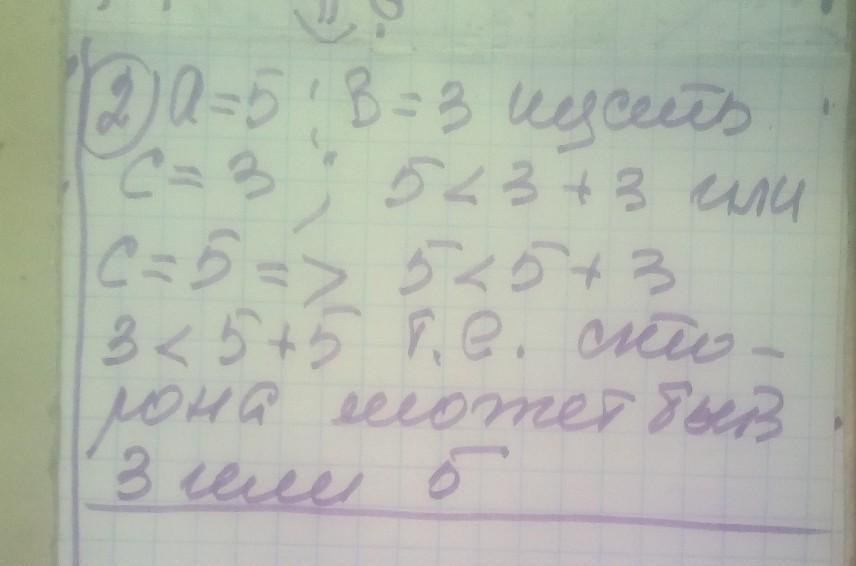 2) a=5; B=3 пусть
C=3; 5<3+3 или
C=5=> 5<5+3
3<5+5 т.е. сто-
рона может быть
3 или 5